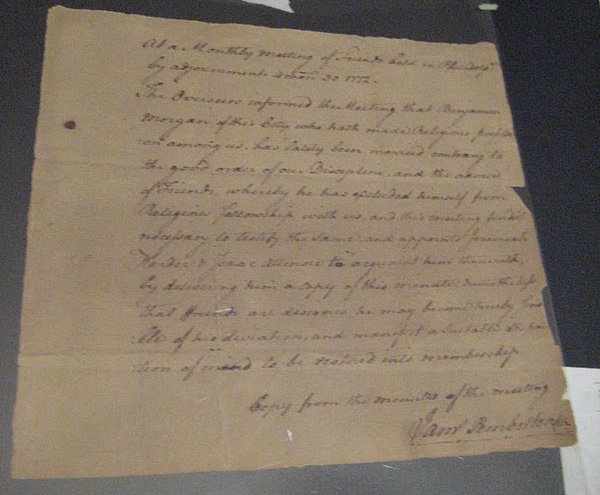 At a Monthly Meeting of Friends held in Philadª
by adjournment 30 1772.
The Overseers informed the Meeting that Benjamin
Morgan of this City who hath made Religious profess
on among us, has lately been married contrary to
the good order of our Discipline, and the advice
of Friends, whereby he has excluded himself from
Religious Fellowship with us, and this meeting finds
necessary to testify the same, and appoints Jeremiah
& Isaac to acquaint him therewith
by delivering him a copy of this minute; nevertheless
that Friends are desirous he may become truly Sensi
ble of his deviation, and manifest a suitable
tion of mind to be restored into membership
Copy from the minutes of the meeting
Jamˢ Pemberton